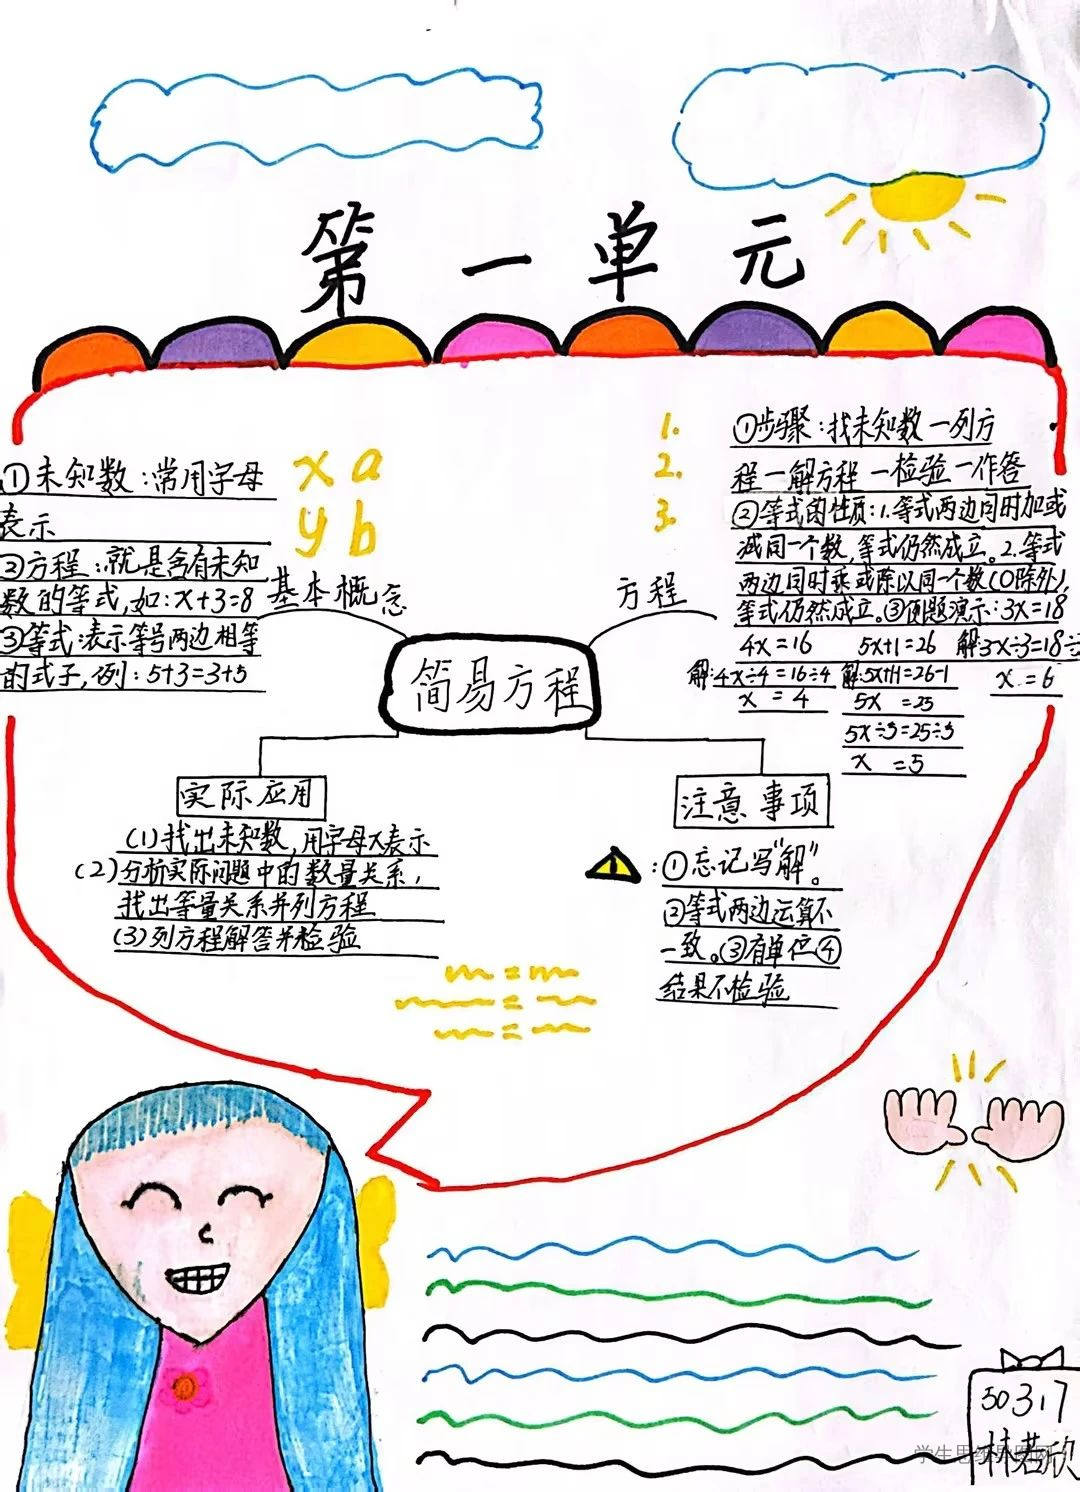 第一单元
①未知数：常用字母
表示
②方程：就是含有未知
数的等式，如：x+3=8
③等式：表示等号两边相等
的式子，例：5+3=3+5
x a
y b
基本概念
1.
2.
3.
方程
①步骤：找未知数一列方
程一解方程一检验一作答
②等式的性质：1.等式两边同时加或
减同一个数，等式仍然成立。2.等式
两边同时乘或除以同一个数(0除外)，
等式仍然成立。③例题演示：3x=18
4x=16 5x+1=26 解：3x÷3=18÷
解：4x÷4=16÷4 解：5x+1-1=26-1 x=6
x=4 5x=25
5x÷5=25÷5
x=5
简易方程
实际应用
(1)找出未知数，用字母x表示
(2)分析实际问题中的数量关系，
找出等量关系并列方程
(3)列方程解答并检验
注意事项
!：①忘记写"解"。
②等式两边运算不
一致。③有单位④
结果不检验
50317
林若欣
学生思维导图网